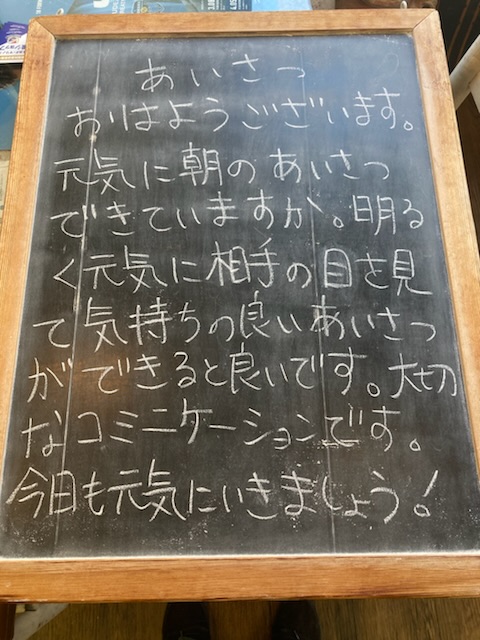 あいさつ
おはようございます。
元気に朝のあいさつ
できていますか。明る
く元気に相手の目を見
て気持ちの良いあいさつ
ができると良いです。大切
なコミニケーションです。
今日も元気にいきましょう!